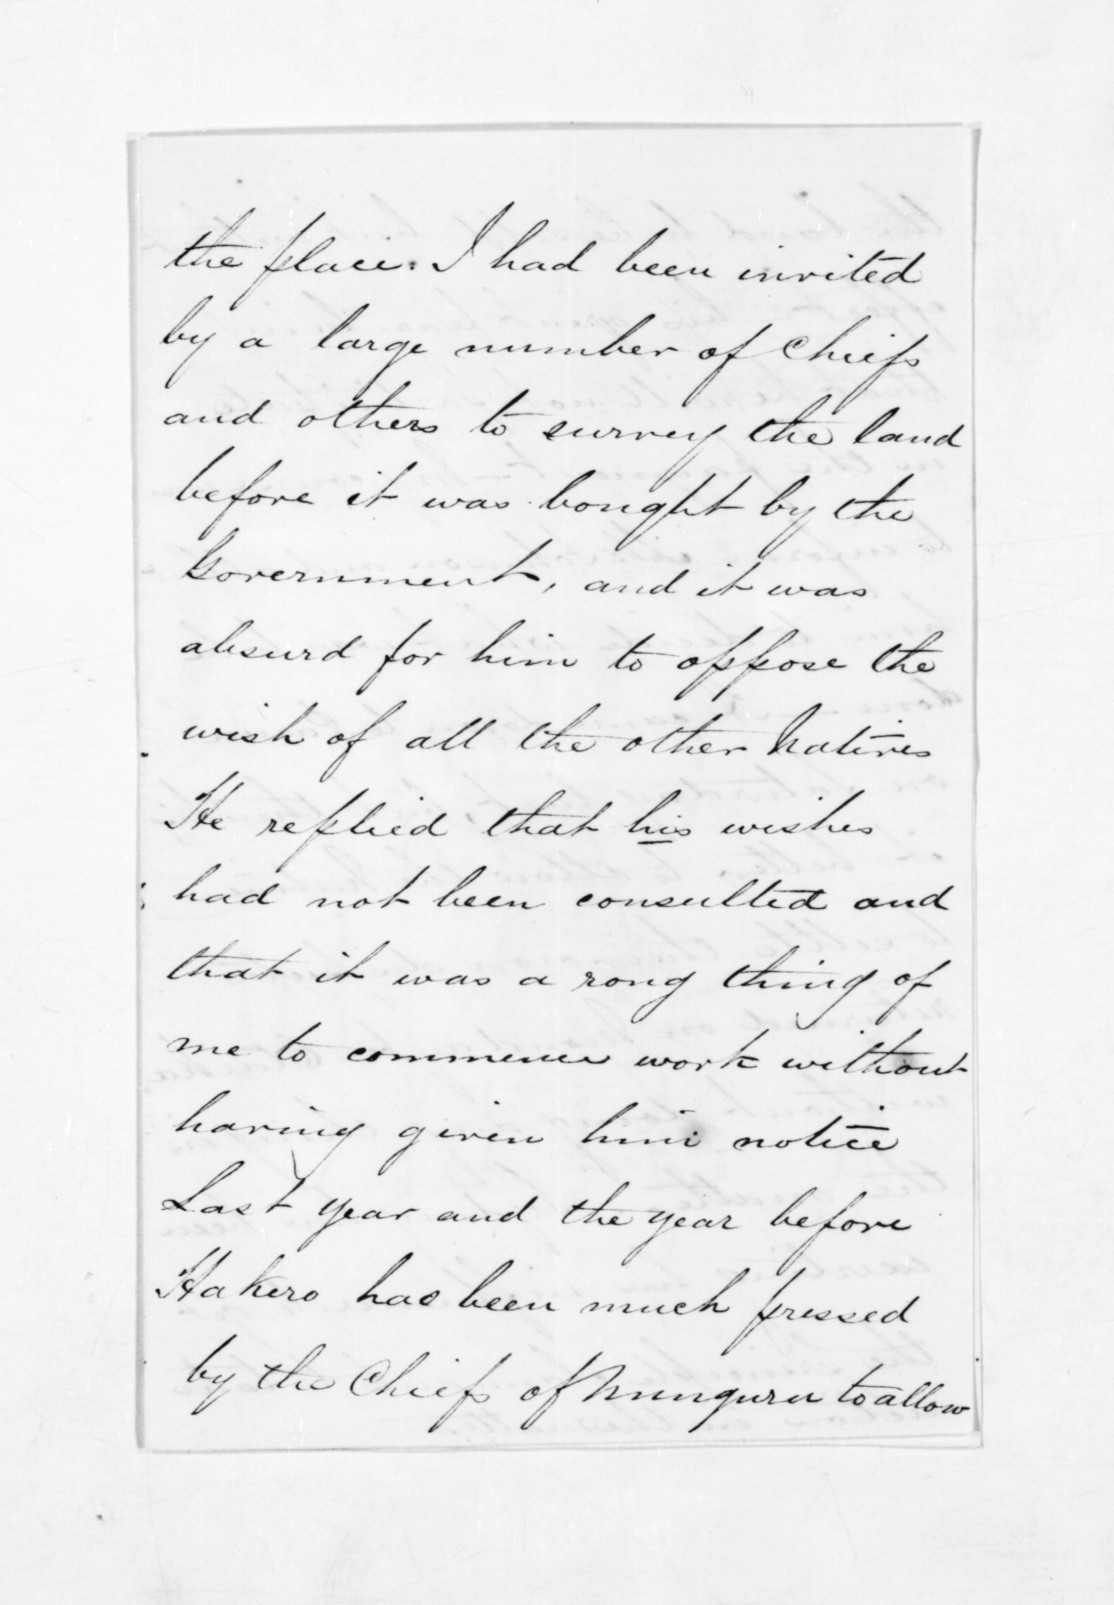 the place. I had been invited
by a large number of Chiefs
and others to survey the land
before it was bought by the
Government, and it was
absurd for him to oppose the
wish of all the other Natives
He replied that his wishes
had not been consulted and
that it was a rong thing of
me to commence work without
having given him notice
Last year and the year before
Hakero has been much pressed
by the Chiefs of Nunguru to allow